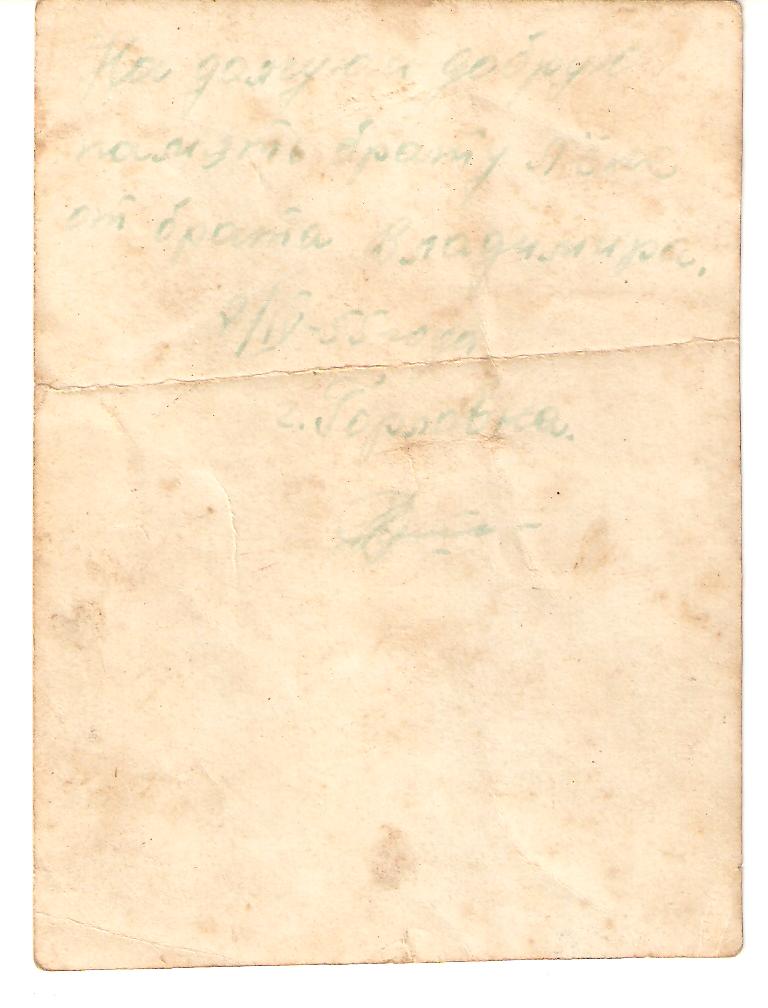 На долгую и добрую
память брату Лёне
от брата Владимира.
9/IV-55 года
г. Горловка.